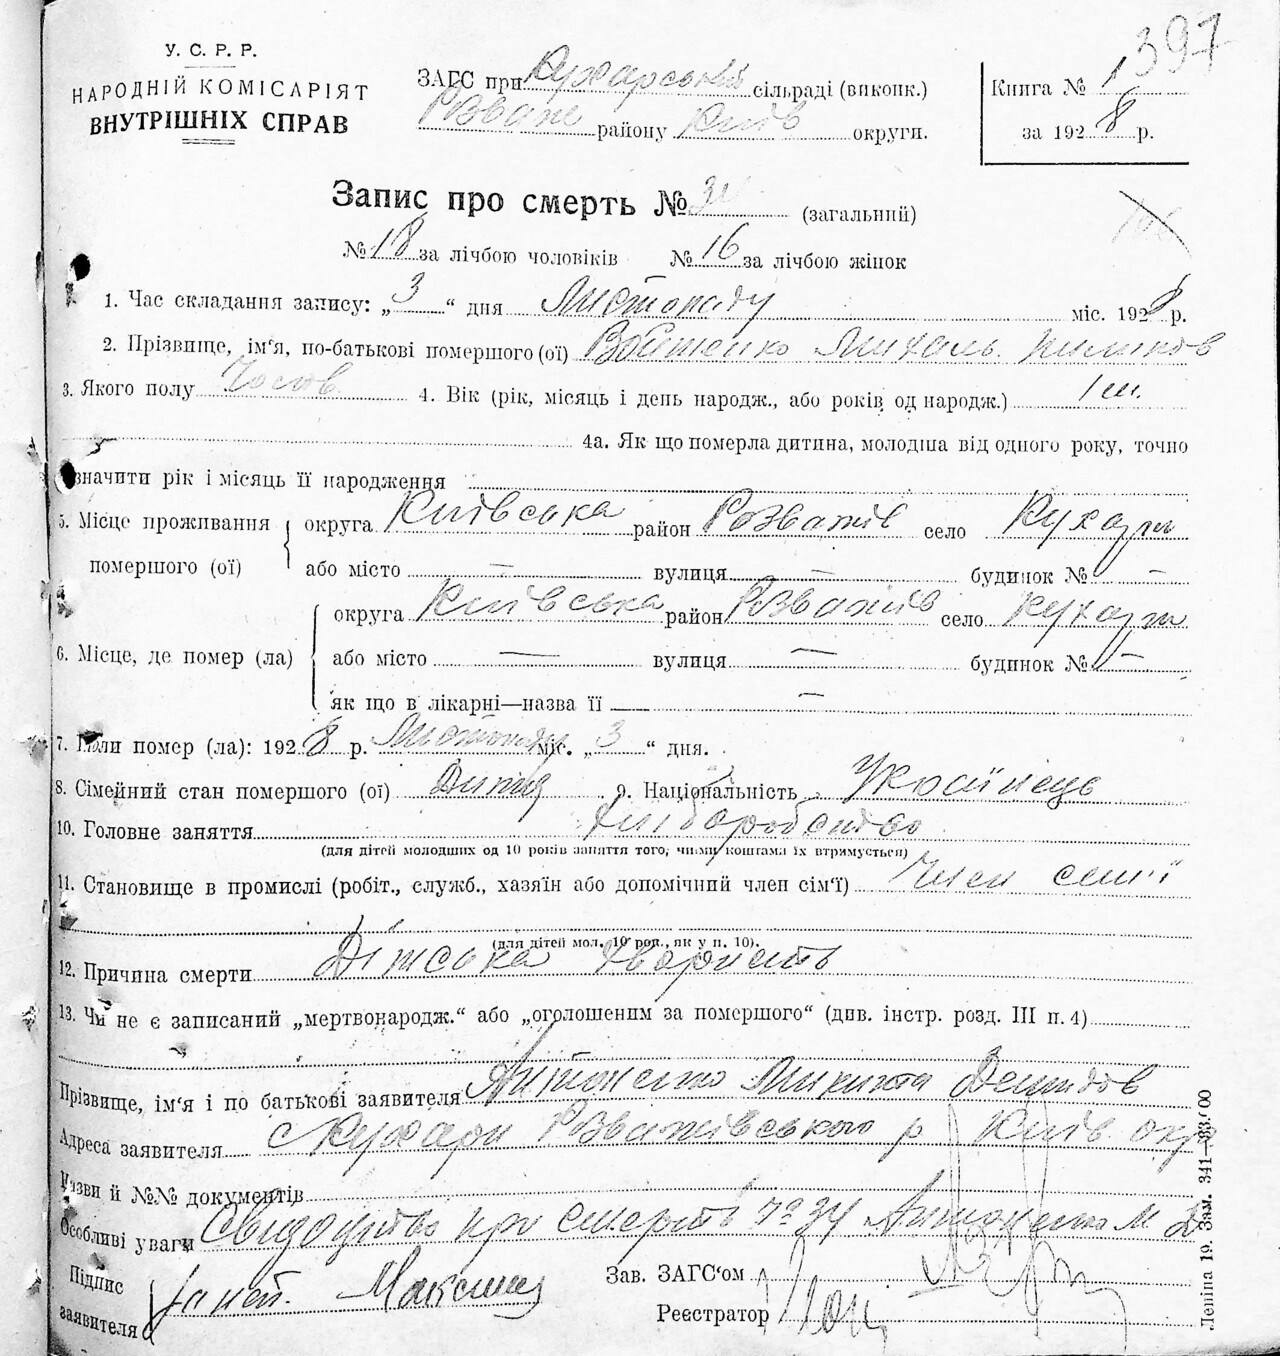 397
У. С. Р. Р.
НАРОДНІЙ КОМІСАРІЯТ
ВНУТРІШНІХ СПРАВ
ЗАГС при Кухарській сільраді (викопк.)
Розваж району Київ округи.
Книга № 1
за 1928 р.
Запис про смерть № 34 (загальний)
№ 18 за лічбою чоловіків № 16 за лічбою жінок
1. Час складання запису: „3“ дня Листопаду міс. 1928 р.
2. Прізвище, ім‘я, по-батькові помершого (ої) Войтенко
3. Якого полу Чолов 4. Вік (рік, місяць і день народж., або років од народж.) 1 м.
4а. Як що померла дитина, молодша від одного року, точно
значити рік і місяць її народження
5. Місце проживання округа Київська район Розважів село Кухари
помершого (ої) або місто — вулиця — будинок № —
округа Київська район Розважів село Кухари
6. Місце, де помер (ла) або місто — вулиця — будинок № —
як що в лікарні—назва її —
7. Коли помер (ла): 1928 р. Листопаду міс. „3“ дня.
8. Сімейний стан помершого (ої) Дитя 9. Національність Українець
10. Головне заняття Хліборобство
(для дітей молодших од 10 років заняття того, чиїми коштами їх втримується)
11. Становище в промислі (робіт., служб., хазяїн або допомічний член сім‘ї) Член семї
(для дітей мол. 10 рок., як у п. 10).
12. Причина смерти Дітська
13. Чи не є записаний „мертвонародж.“ або „оголошеним за помершого“ (див. інстр. розд. III п. 4)
Прізвище, ім‘я і по батькові заявителя Антоненко Микита Демидов
Адреса заявителя с Кухари Розважівського р Київ. окр
Назви й №№ документів
Особливі уваги Свідоцтво про смерть № 34 Антоненко М Д
Підпис
заявителя
Зав. ЗАГС‘ом
Реєстратор
Лепіпа 19. Зам. 341—